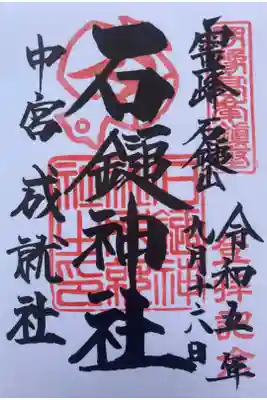 霊峰 石鎚山
令和五年
九月十六日
石鎚神社
中宮 成就社
登拝記念